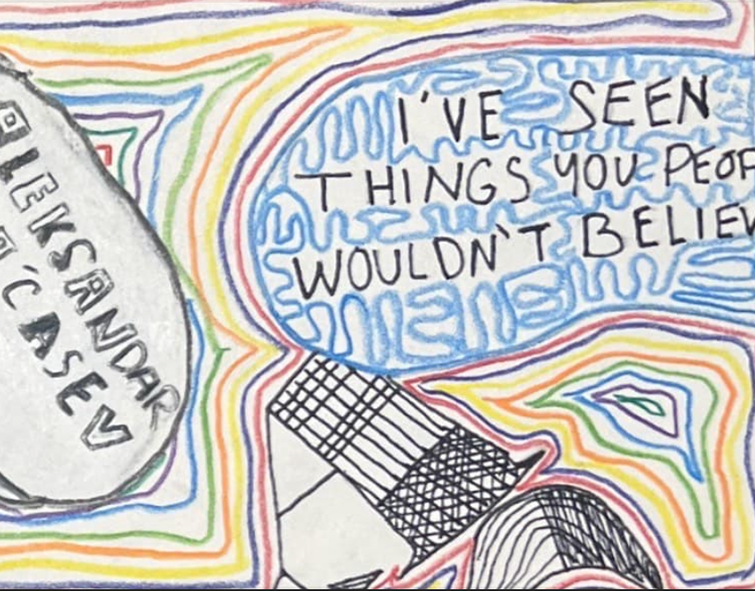 ALEKSANDAR
AĆASEV
I'VE SEEN
THINGS YOU PEOP
WOULDN'T BELIEV